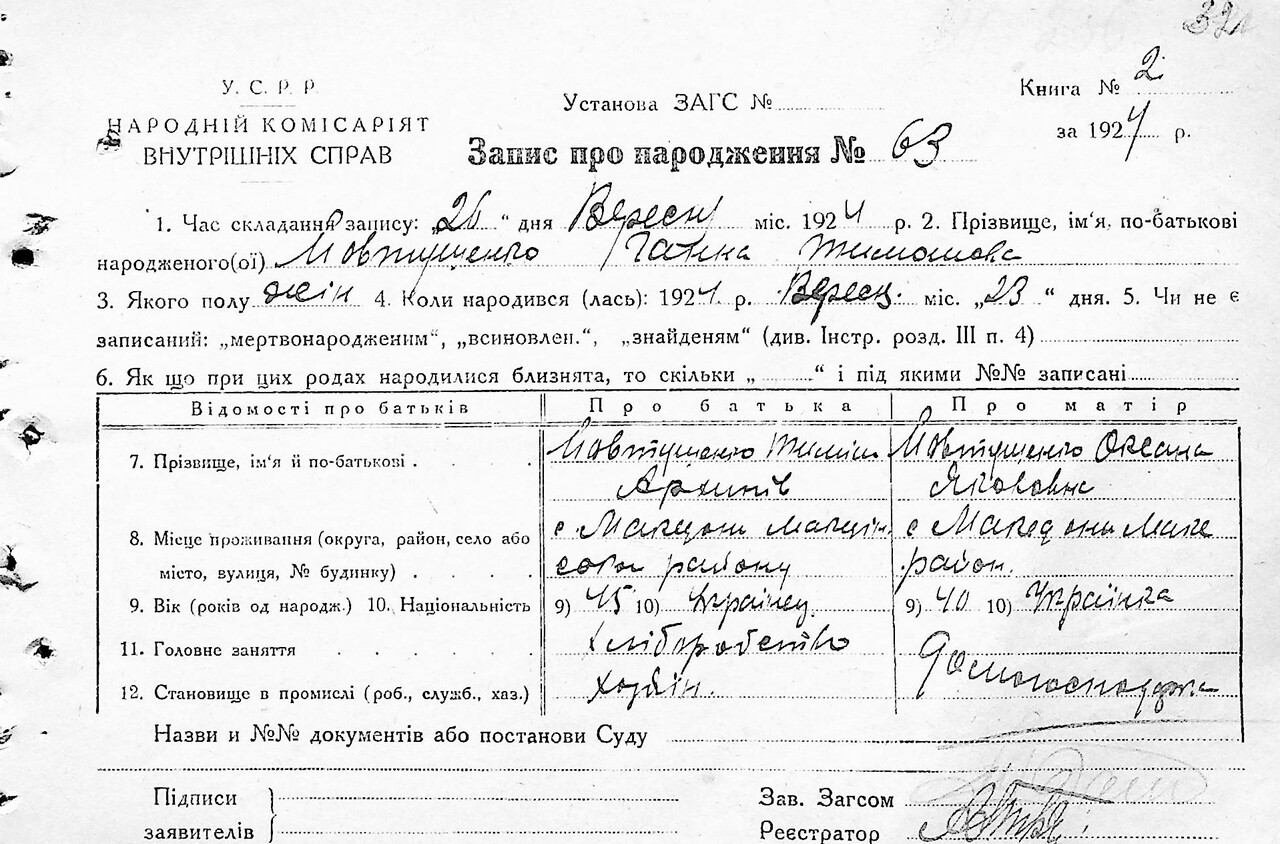 32
У. С. Р. Р.
НАРОДНІЙ КОМІСАРІЯТ
ВНУТРІШНІХ СПРАВ
Установа ЗАГС №
Книга № 2
за 1924 р.
Запис про народження № 63
1. Час складання запису: „26“ дня Вересня міс. 1924 р. 2. Прізвище, ім'я, по-батькові
народженого(ої) Мовтушенко Ганна Тимошова
3. Якого полу жін 4. Коли народився (лась): 1924 р. Вересн. міс. „23“ дня. 5. Чи не є
записаний: „мертвонародженим“, „всиновлен.“, „знайденям“ (див. Інстр. розд. III п. 4)
6. Як що при цих родах народилися близнята, то скільки „ “ і під якими №№ записані
Відомості про батьків Про батька Про матір
7. Прізвище, ім'я й по-батькові . . . Мовтушенко Тиміш Мовтушенко Оксана
Архипів Якововна
8. Місце проживання (округа, район, село або с Македони Македон с Македони Маке
місто, вулиця, № будинку) . . . . ського району район.
9. Вік (років од народж.) 10. Національність 9) 45 10) Українец 9) 40 10) Українка
11. Головне заняття . . . . . Хліборобство
12. Становище в промислі (роб., служб., хаз.) хазяїн. Домогосподарка
Назви и №№ документів або постанови Суду
Підписи
заявителів
Зав. Загсом
Реєстратор